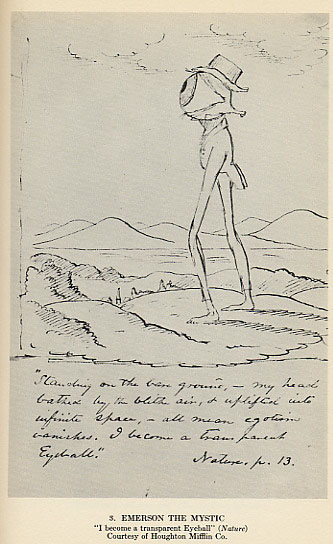 "Standing on the bare ground, – my head
bathed by the blithe air, & uplifted into
infinite space, – all mean egotism
vanishes. I become a transparent
Eyeball."
Nature, p. 13.
3. EMERSON THE MYSTIC
"I become a transparent Eyeball" (Nature)
Courtesy of Houghton Mifflin Co.